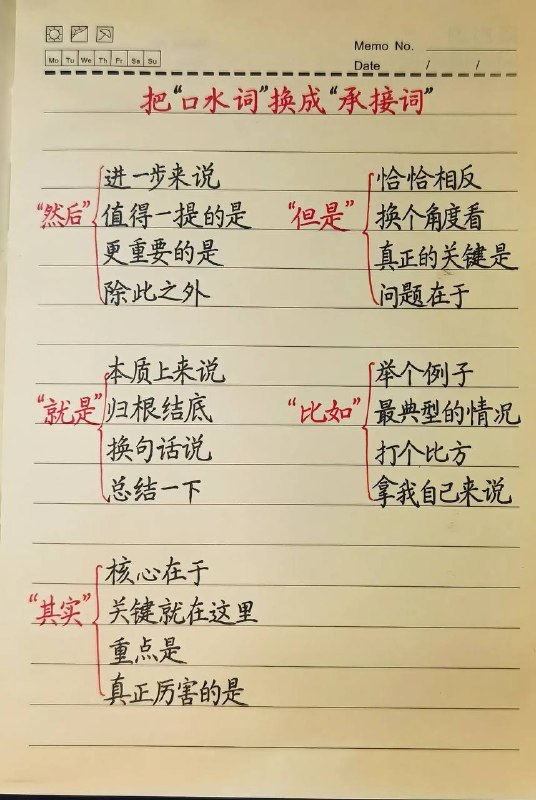 Memo No.
Mo Tu We Th Fr Sa Su
Date / /
把“口水词”换成“承接词”
“然后”
进一步来说
值得一提的是
更重要的是
除此之外
“但是”
恰恰相反
换个角度看
真正的关键是
问题在于
“就是”
本质上来说
归根结底
换句话说
总结一下
“比如”
举个例子
最典型的情况
打个比方
拿我自己来说
“其实”
核心在于
关键就在这里
重点是
真正厉害的是